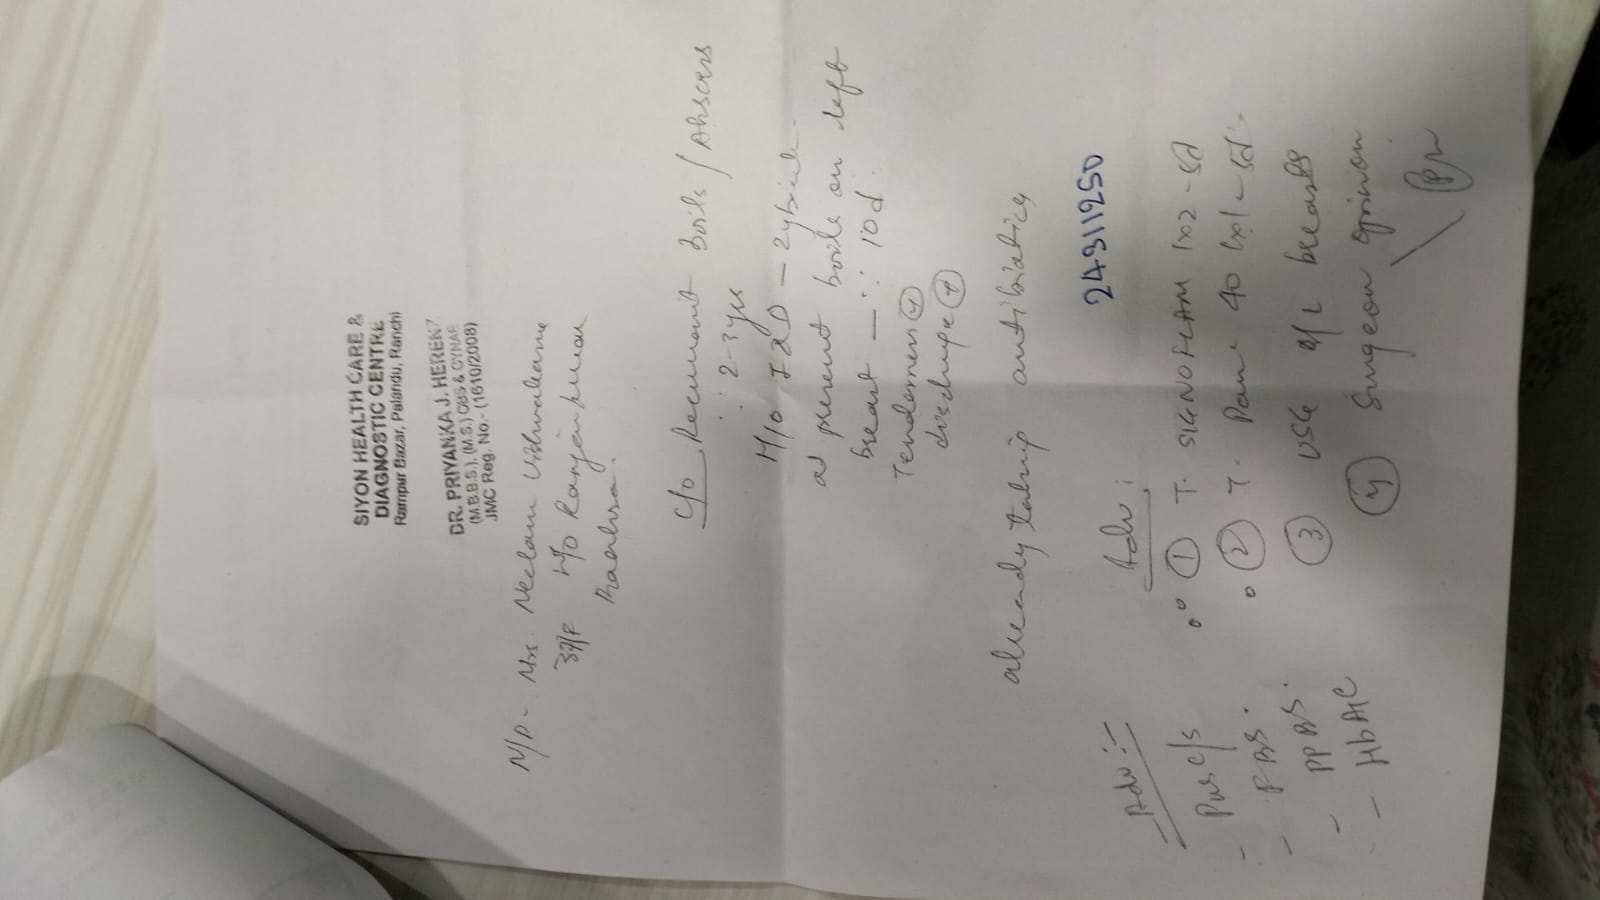 SIYON HEALTH CARE &
DIAGNOSTIC CENTRE
Rampur Bazar, Palandu, Ranchi
DR. PRIYANKA J. HERENZ
(M.B.B.S.), (M.S.) OBS & GYNAE
JMC Reg. No:- (1610/2008)
N/P - Mrs Neelam Vishwakarma
37/F W/O Ranjan kumar
C/O Recurrent boils / Abscess
∵ 2-3 yrs
H/O I&D - 2 y back
at present boils on left
breast — ∵ 10d.
Tenderness (+)
discharge (+)
already taking antibiotics
249311250
Adv :-
- Pus C/S
- FBS.
- PPBS.
- HbA1C
Adv :
① T. SIGNOFLAM 1x2 - 5d
② T. Pan - 40 1x1 - 5d
③ USG B/L breasts
④ Surgeon opinion